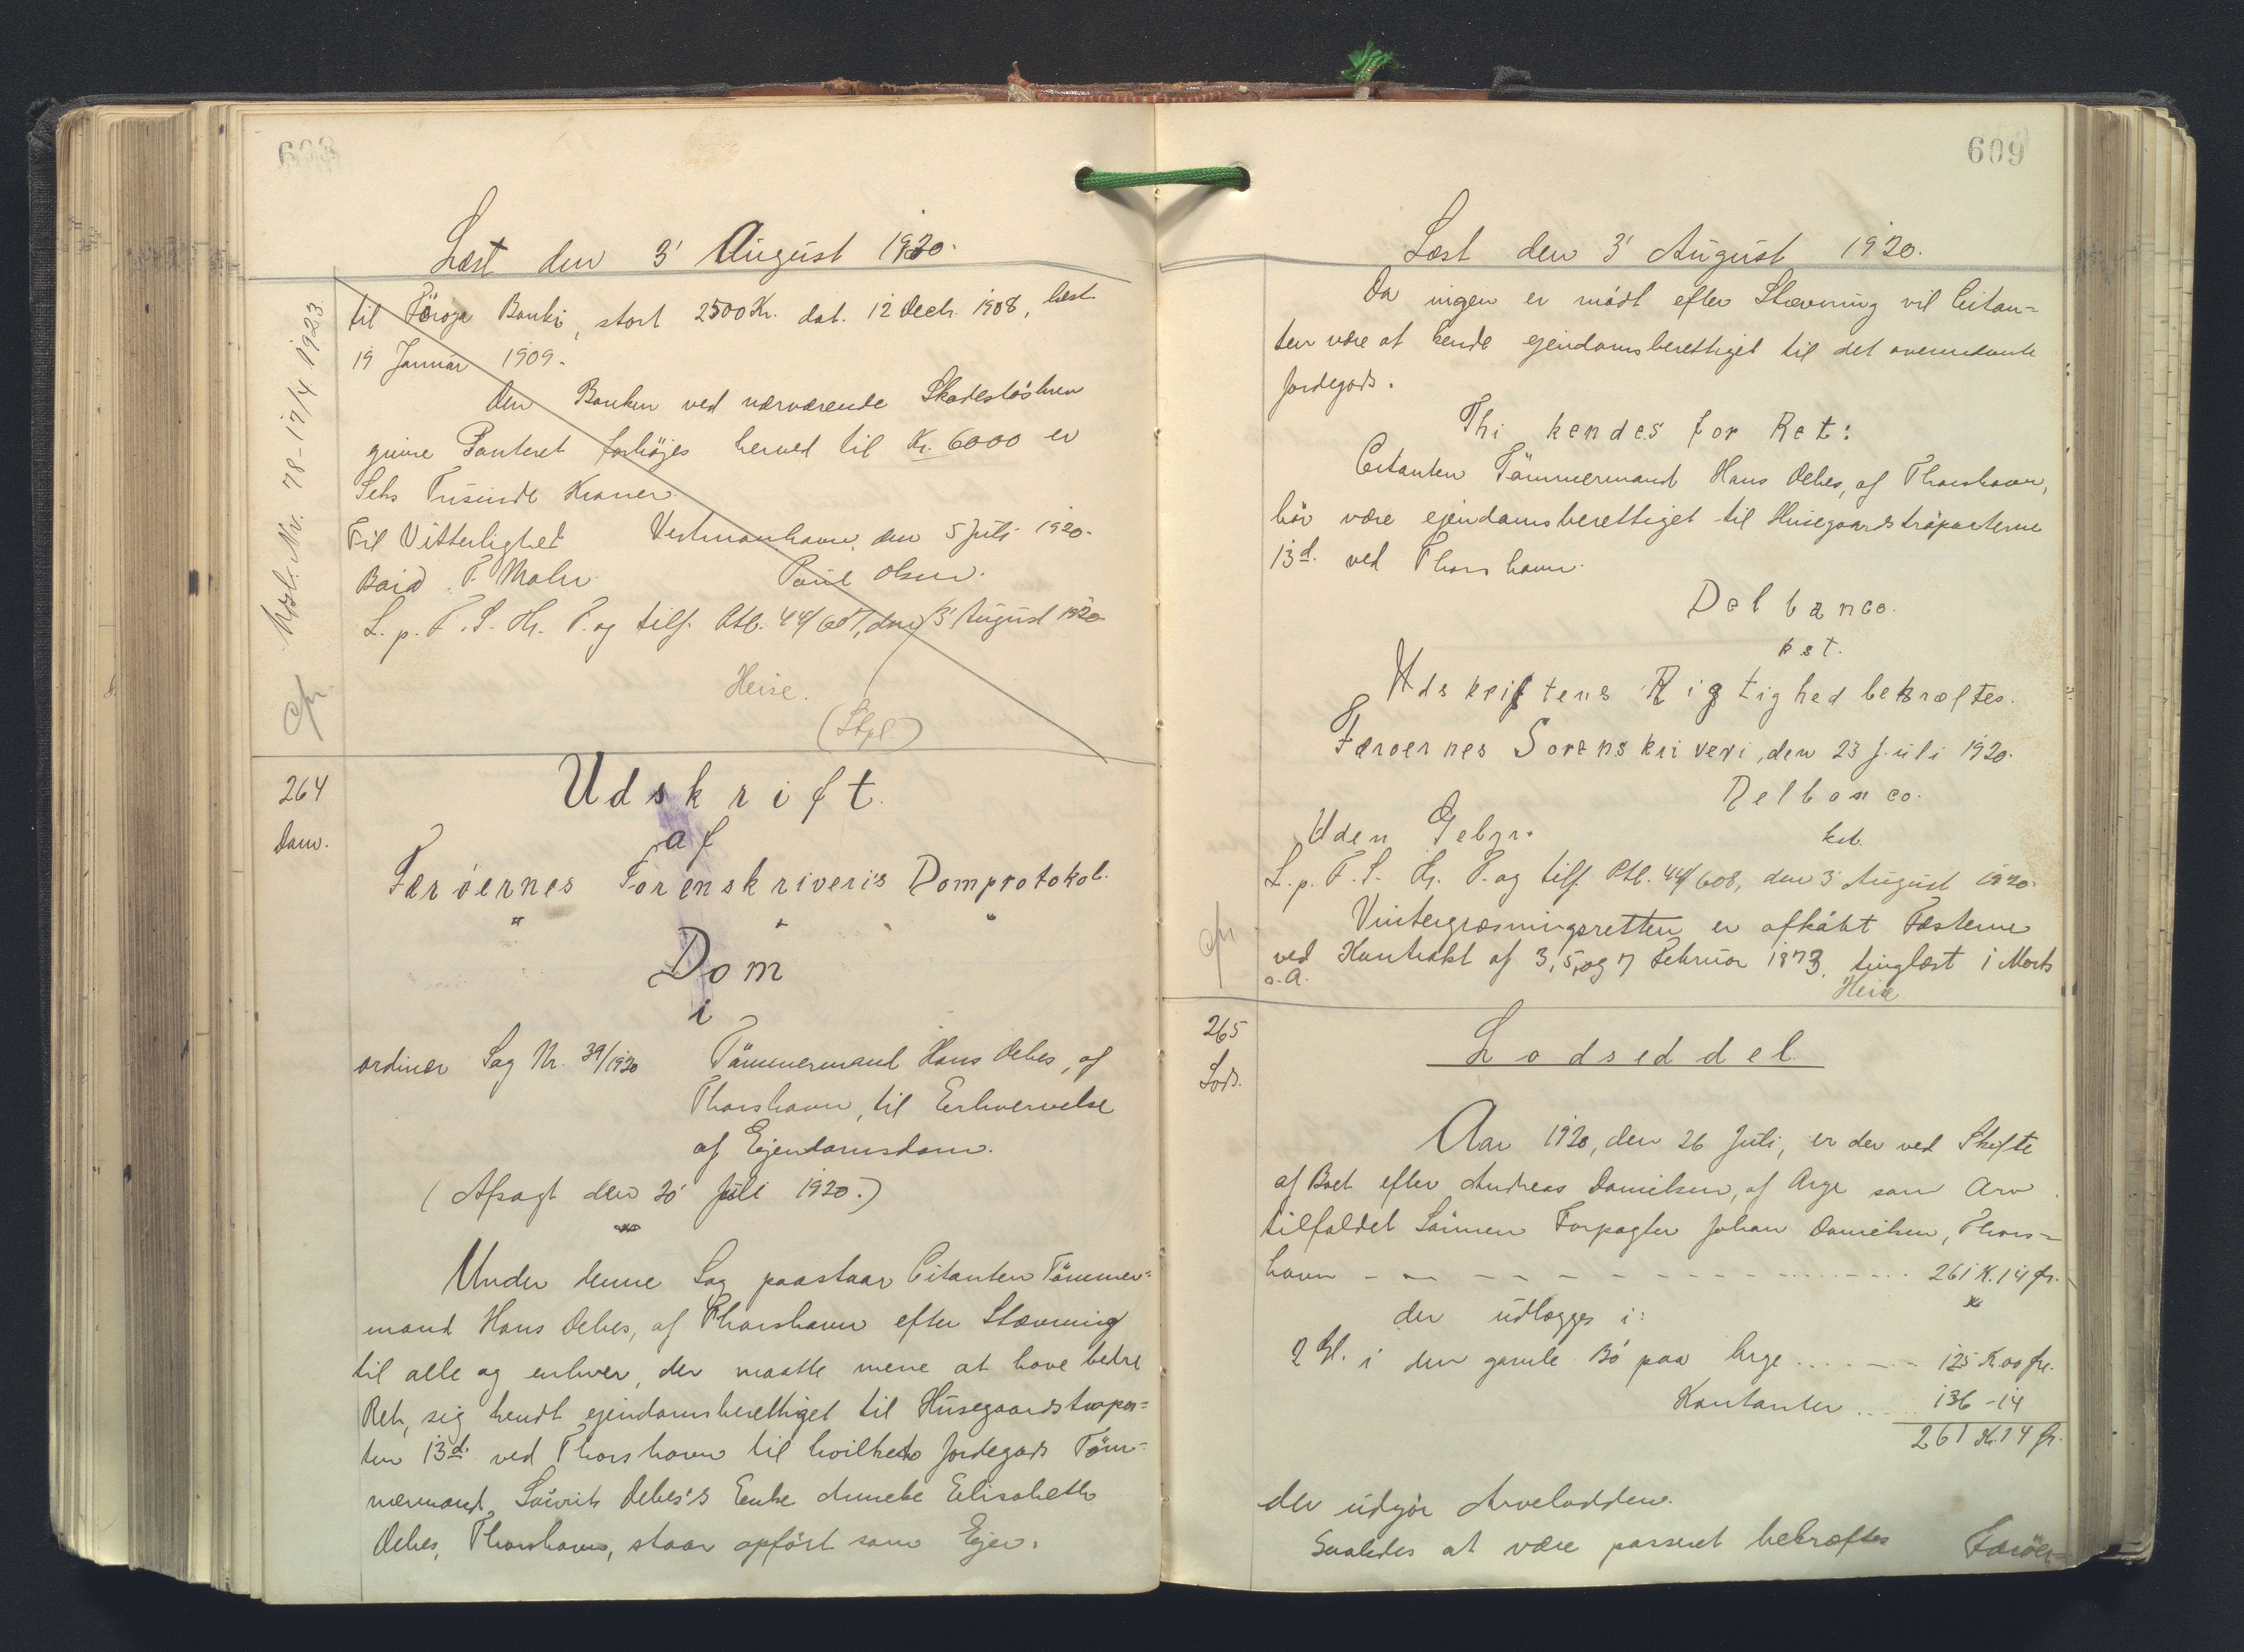 608
Læst den 3' August 1920.
til Föroya Banki, stort 2500 Kr. dat. 12 Decbr. 1908, læst
19 Januar 1909.
Den Banken ved nærværende Skadesløsbrev
givne Panteret forhöjes herved til Kr. 6000 er
Seks Tusinde Kroner.
Til Vitterlighed Vestmanhavn, den 5 Juli 1920.
Poul Olsen.
L. p. F. S. Kr. P. og tilf. Ptb. 44/607, den 3' August 1920
Heise.
(Stpl.)
Udsl. Nr. 78-17/4 1923.
cfr
264
Dom.
Udskrift
af
Færöernes Sorenskriveri's Domprotokol.
" " "
Dom
i
ordinær Sag Nr. 39/1920 Tömmermand Hans Debes, af
Thorshavn, til Erhvervelse
af Ejendomsdom.
(Afsagt den 20' Juli 1920.)
Under denne Sag paastaar Citanten Tömmer=
mand Hans Debes, af Thorshavn efter Stævning
til alle og enhver, der maatte mene at have bedre
Ret, sig kendt ejendomsberettiget til Husegaardstrøpar=
ten 13d. ved Thorshavn til hvilket Jordegods Töm=
mermand Sáurits Debes's Enke Anneke Elisabeth
Debes, Thorshavn, staar opfört som Ejer.
609
Læst den 3' August 1920.
Da ingen er mödt efter Stævning vil Citan=
ten være at kende ejendomsberettiget til det ovenomtalte
Jordegods.
Thi kendes for Ret:
Citanten Tömmermand Hans Debes, af Thorshavn,
bör være ejendomsberettiget til Husegaardströparterne
13d. ved Thorshavn.
Delbanco.
kst.
Udskriftens Rigtighed bekræftes.
Færoernes Sorenskriveri, den 23 Juli 1920.
Delbanco.
Uden Gebyr. kst.
L. p. F. S. Kr. P. og tilf. Ptb. 44/608, den 3' August 1920.
Vintergræsningsretten er afköbt Fæsterne
ved Kontrakt af 3, 5, og 7 Februar 1873, tinglæst i Marts
s. A. Heise
cfr
265
Lods.
Lodseddel
Aar 1920, den 26 Juli, er der ved Skifte
af Boet efter Andreas Danielsen, af Arge som Arv
tilfaldet Sönnen Forpagter Johan Danielsen, Thors=
havn - - - - - - - - - - 261 K. 14 Ør.
der udlægges i:
2 Gl. i den gamle Bö paa Arge ..... - - 125 K. 00 Ør.
Kontanter .... 136 - 14
261 K. 14 Ør.
der udgör Arvelodden.
Saaledes at være passeret bekræftes Færöer=